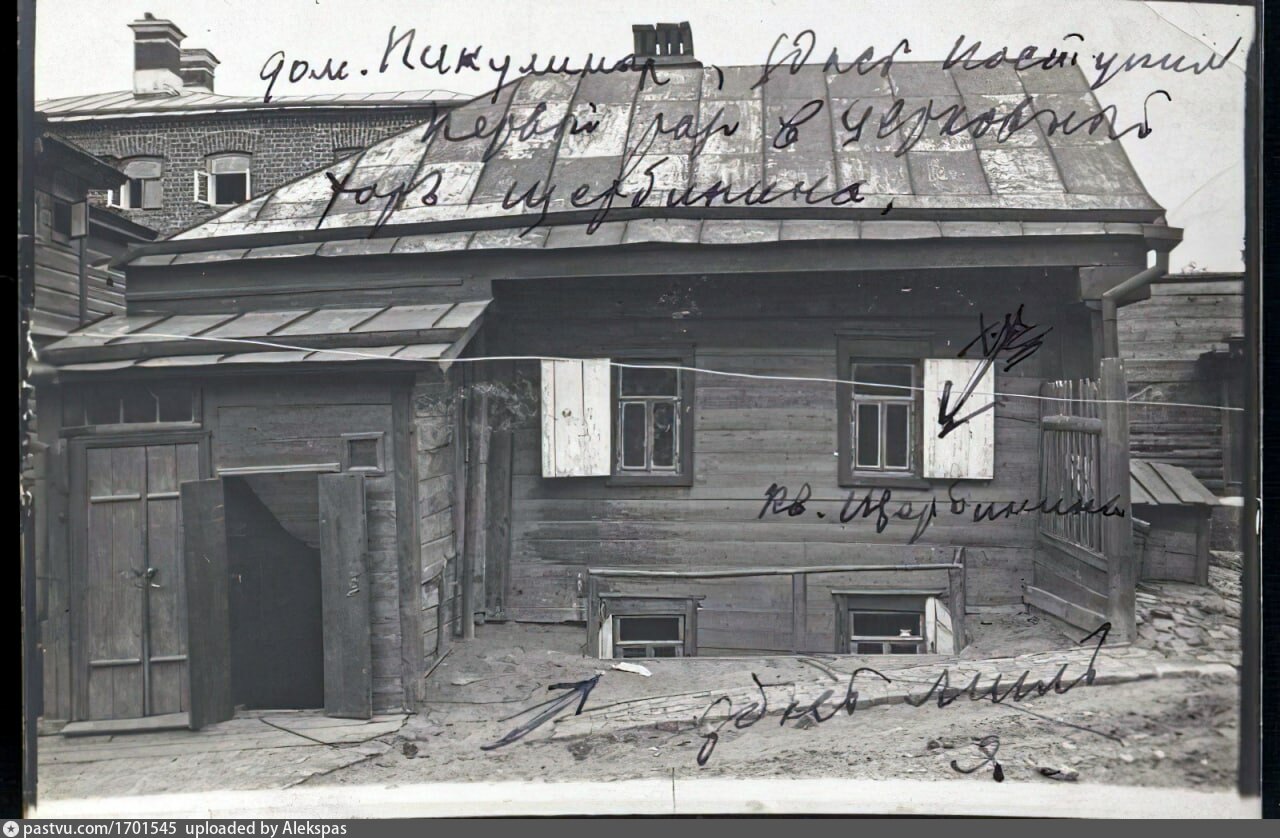 дом. Пикулина, здесь поступил
первый раз в церковный
хоръ Щербинина,
кв. Щербинина
здесь жилъ
я
pastvu.com/1701545 uploaded by Alekspas